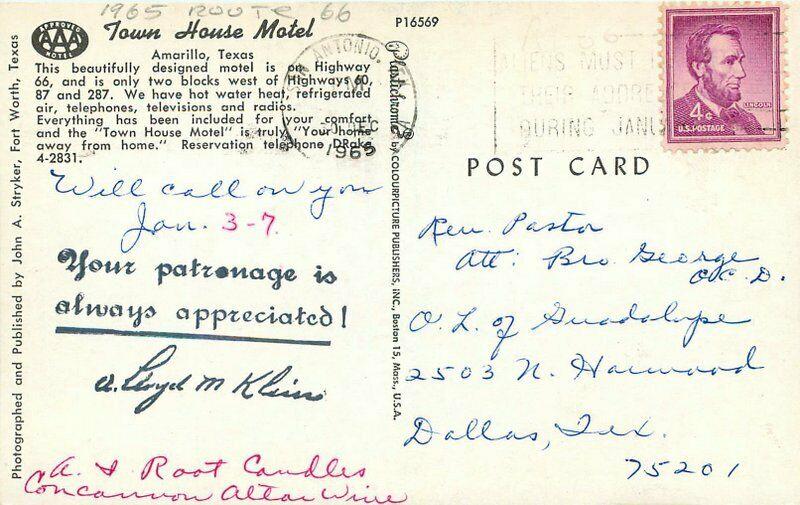 1965 ROUTE 66
APPROVED
AAA
MOTEL
Town House Motel
Amarillo, Texas
This beautifully designed motel is on Highway
66, and is only two blocks west of Highways 60,
87 and 287. We have hot water heat, refrigerated
air, telephones, televisions and radios.
Everything has been included for your comfort
and the "Town House Motel" is truly "Your home
away from home." Reservation telephone DRake
4-2831.
Will call on you
Jan. 3-7.
Your patronage is
always appreciated!
Lloyd M Klein
A. I Root Candles
Concannon Altar Wine
Photographed and Published by John A. Stryker, Fort Worth, Texas
P16569
Plastichrome ®
by COLOURPICTURE PUBLISHERS, INC., Boston 15, Mass., U.S.A.
SAN ANTONIO,
PM
DEC
1965
ALIENS MUST
THEIR ADDRE
DURING JANU
LINCOLN
4¢
U.S. POSTAGE
POST CARD
Rev. Pastor
Att: Bro. George
O.C.D.
O. L. of Guadalupe
2503 N. Harwood
Dallas, Tex.
75201